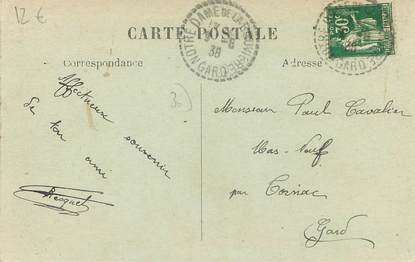 12€
CARTE POSTALE
NOTRE DAME DE LA ROUVIERE
13-8
38
GARD
30c
Correspondance
Adresse
Affectueux souvenir
de ton ami
Monsieur Paul Cavalier
Mas-Neuf
par
Gard